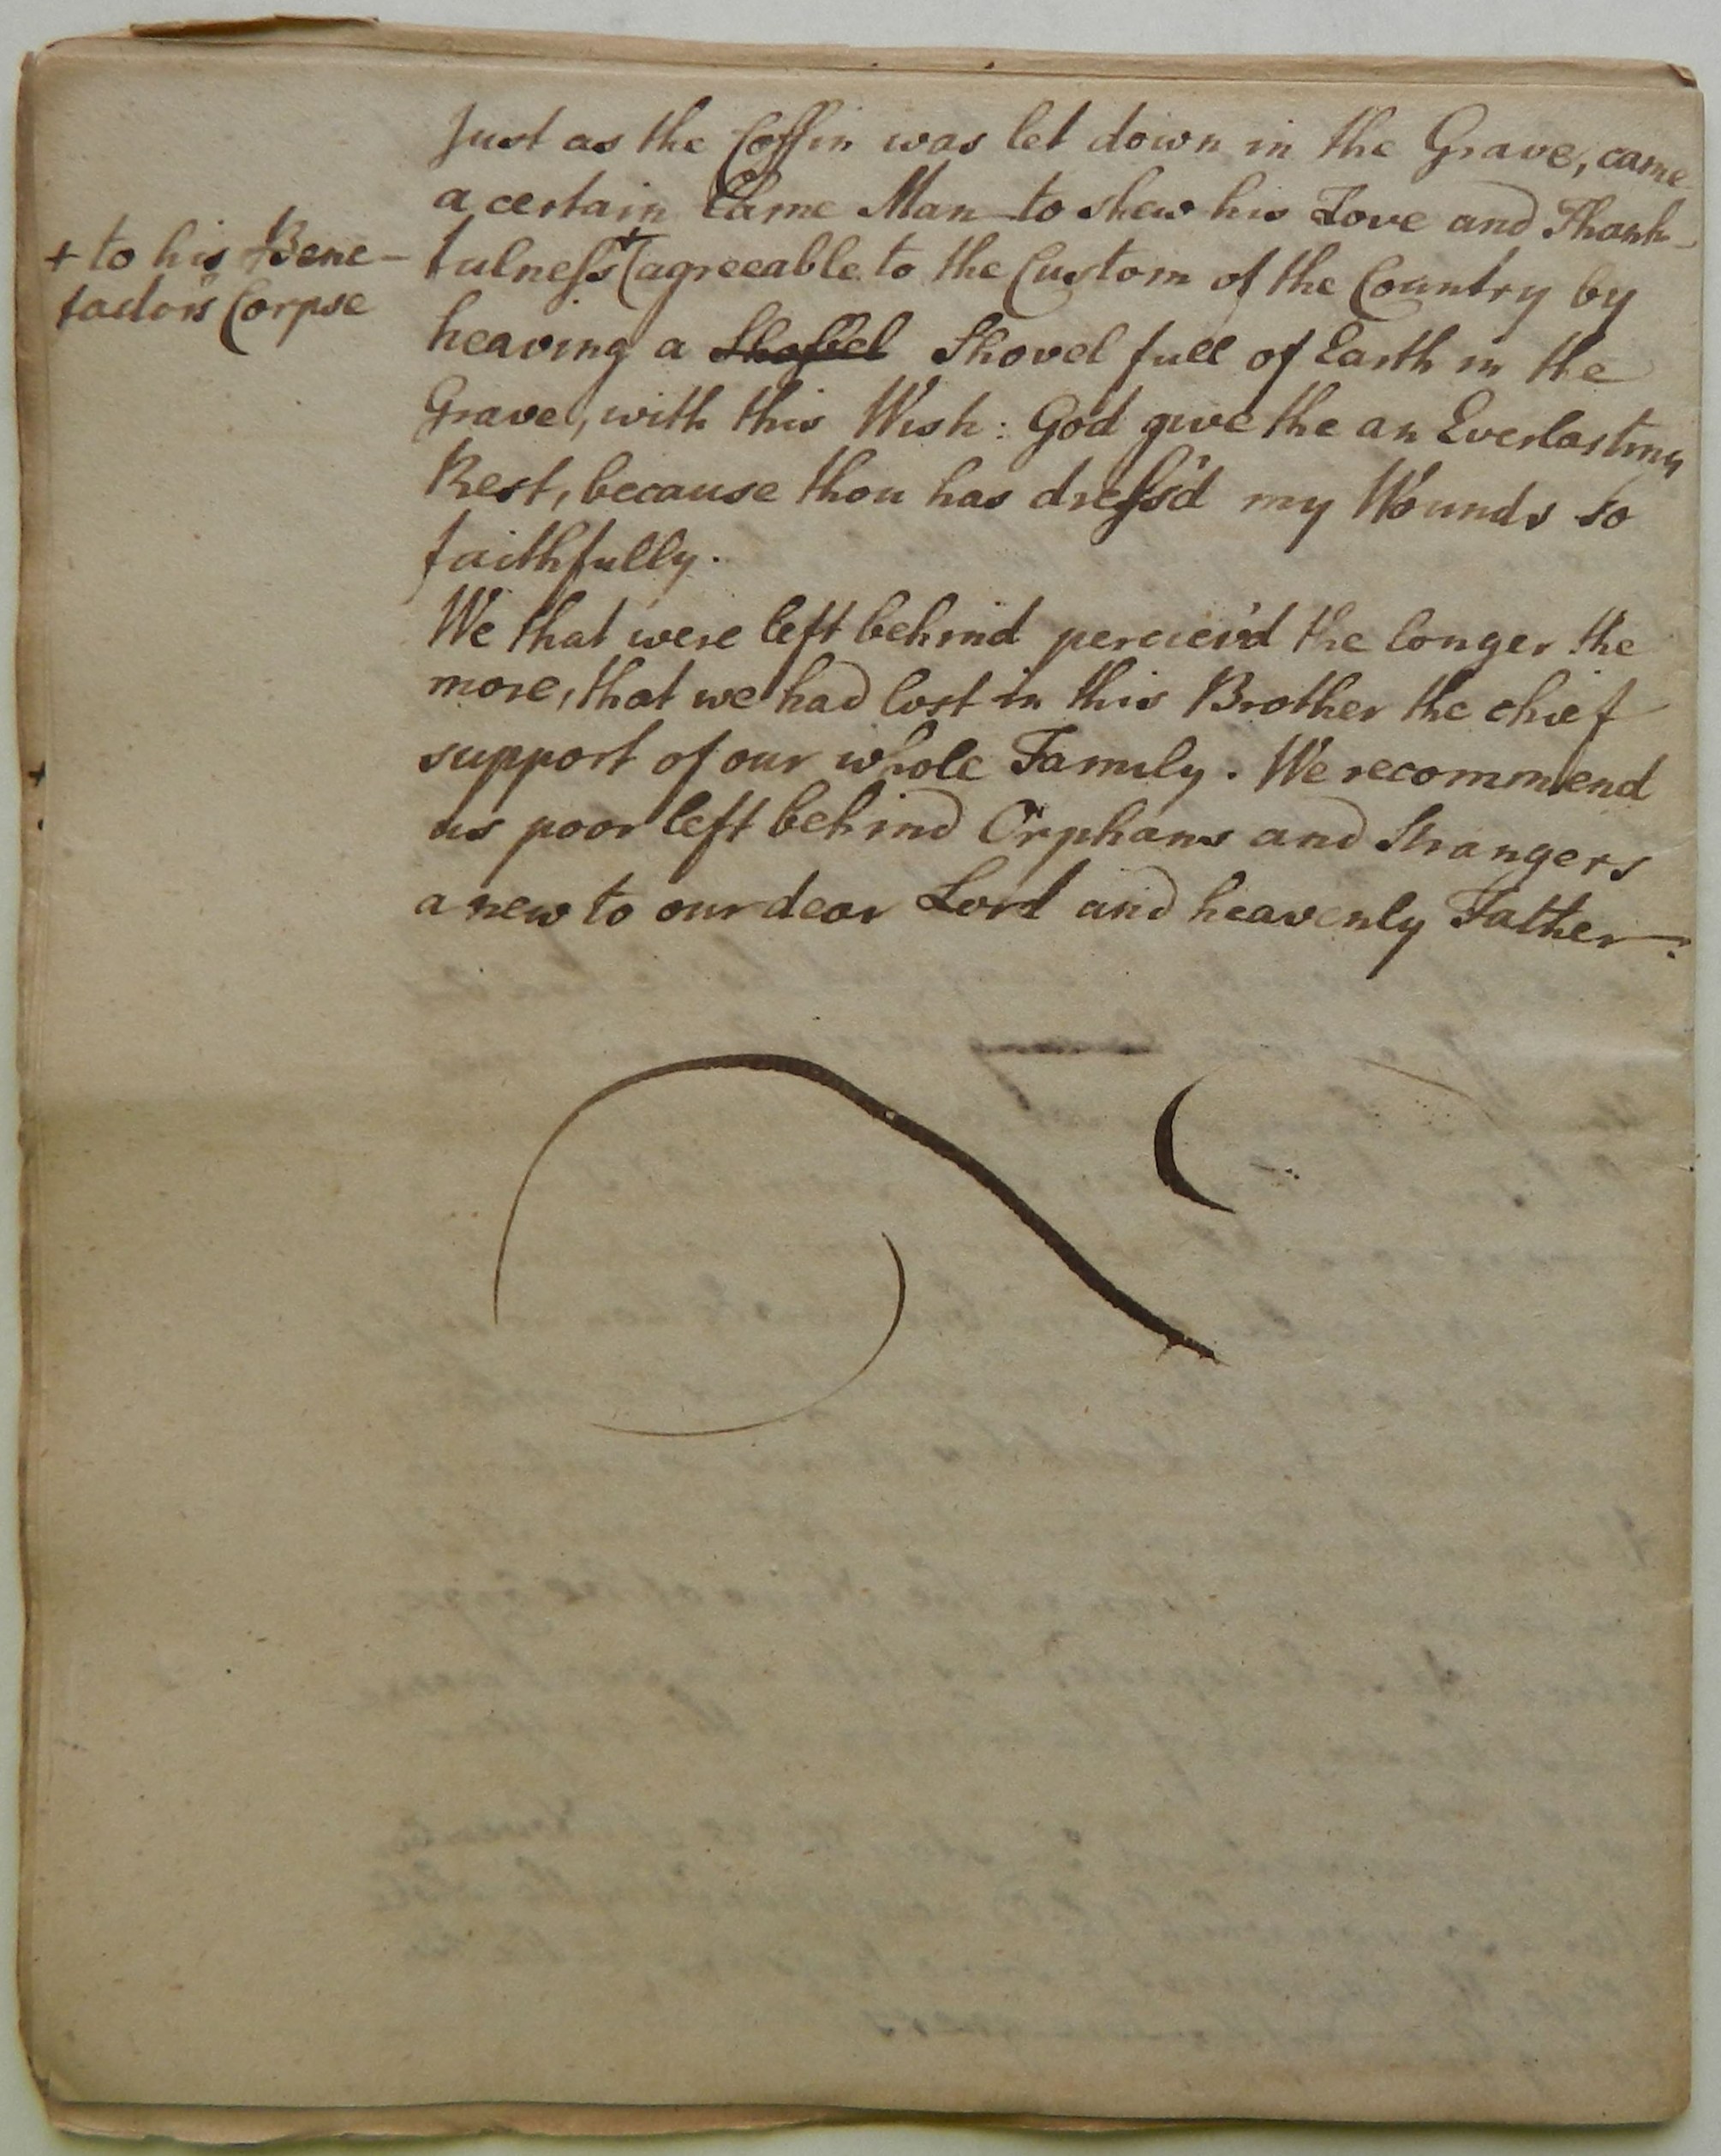 Just as the Coffin was let down in the Grave, came
a certain Lame Man to shew his Love and Thank-
+ to his Bene-
factor's Corpse
fulness + (agreeable to the Custom of the Country by
heaving a Shoffel Shovel full of Earth in the
Grave, with this Wish: God give the an Everlasting
Rest, because thou has dress'd my Wounds so
faithfully.
We that were left behind perciev'd the longer the
more, that we had lost in this Brother the chief
support of our whole Family. We recommend
us poor left behind Orphans and Strangers
a new to our dear Lord and heavenly Father.